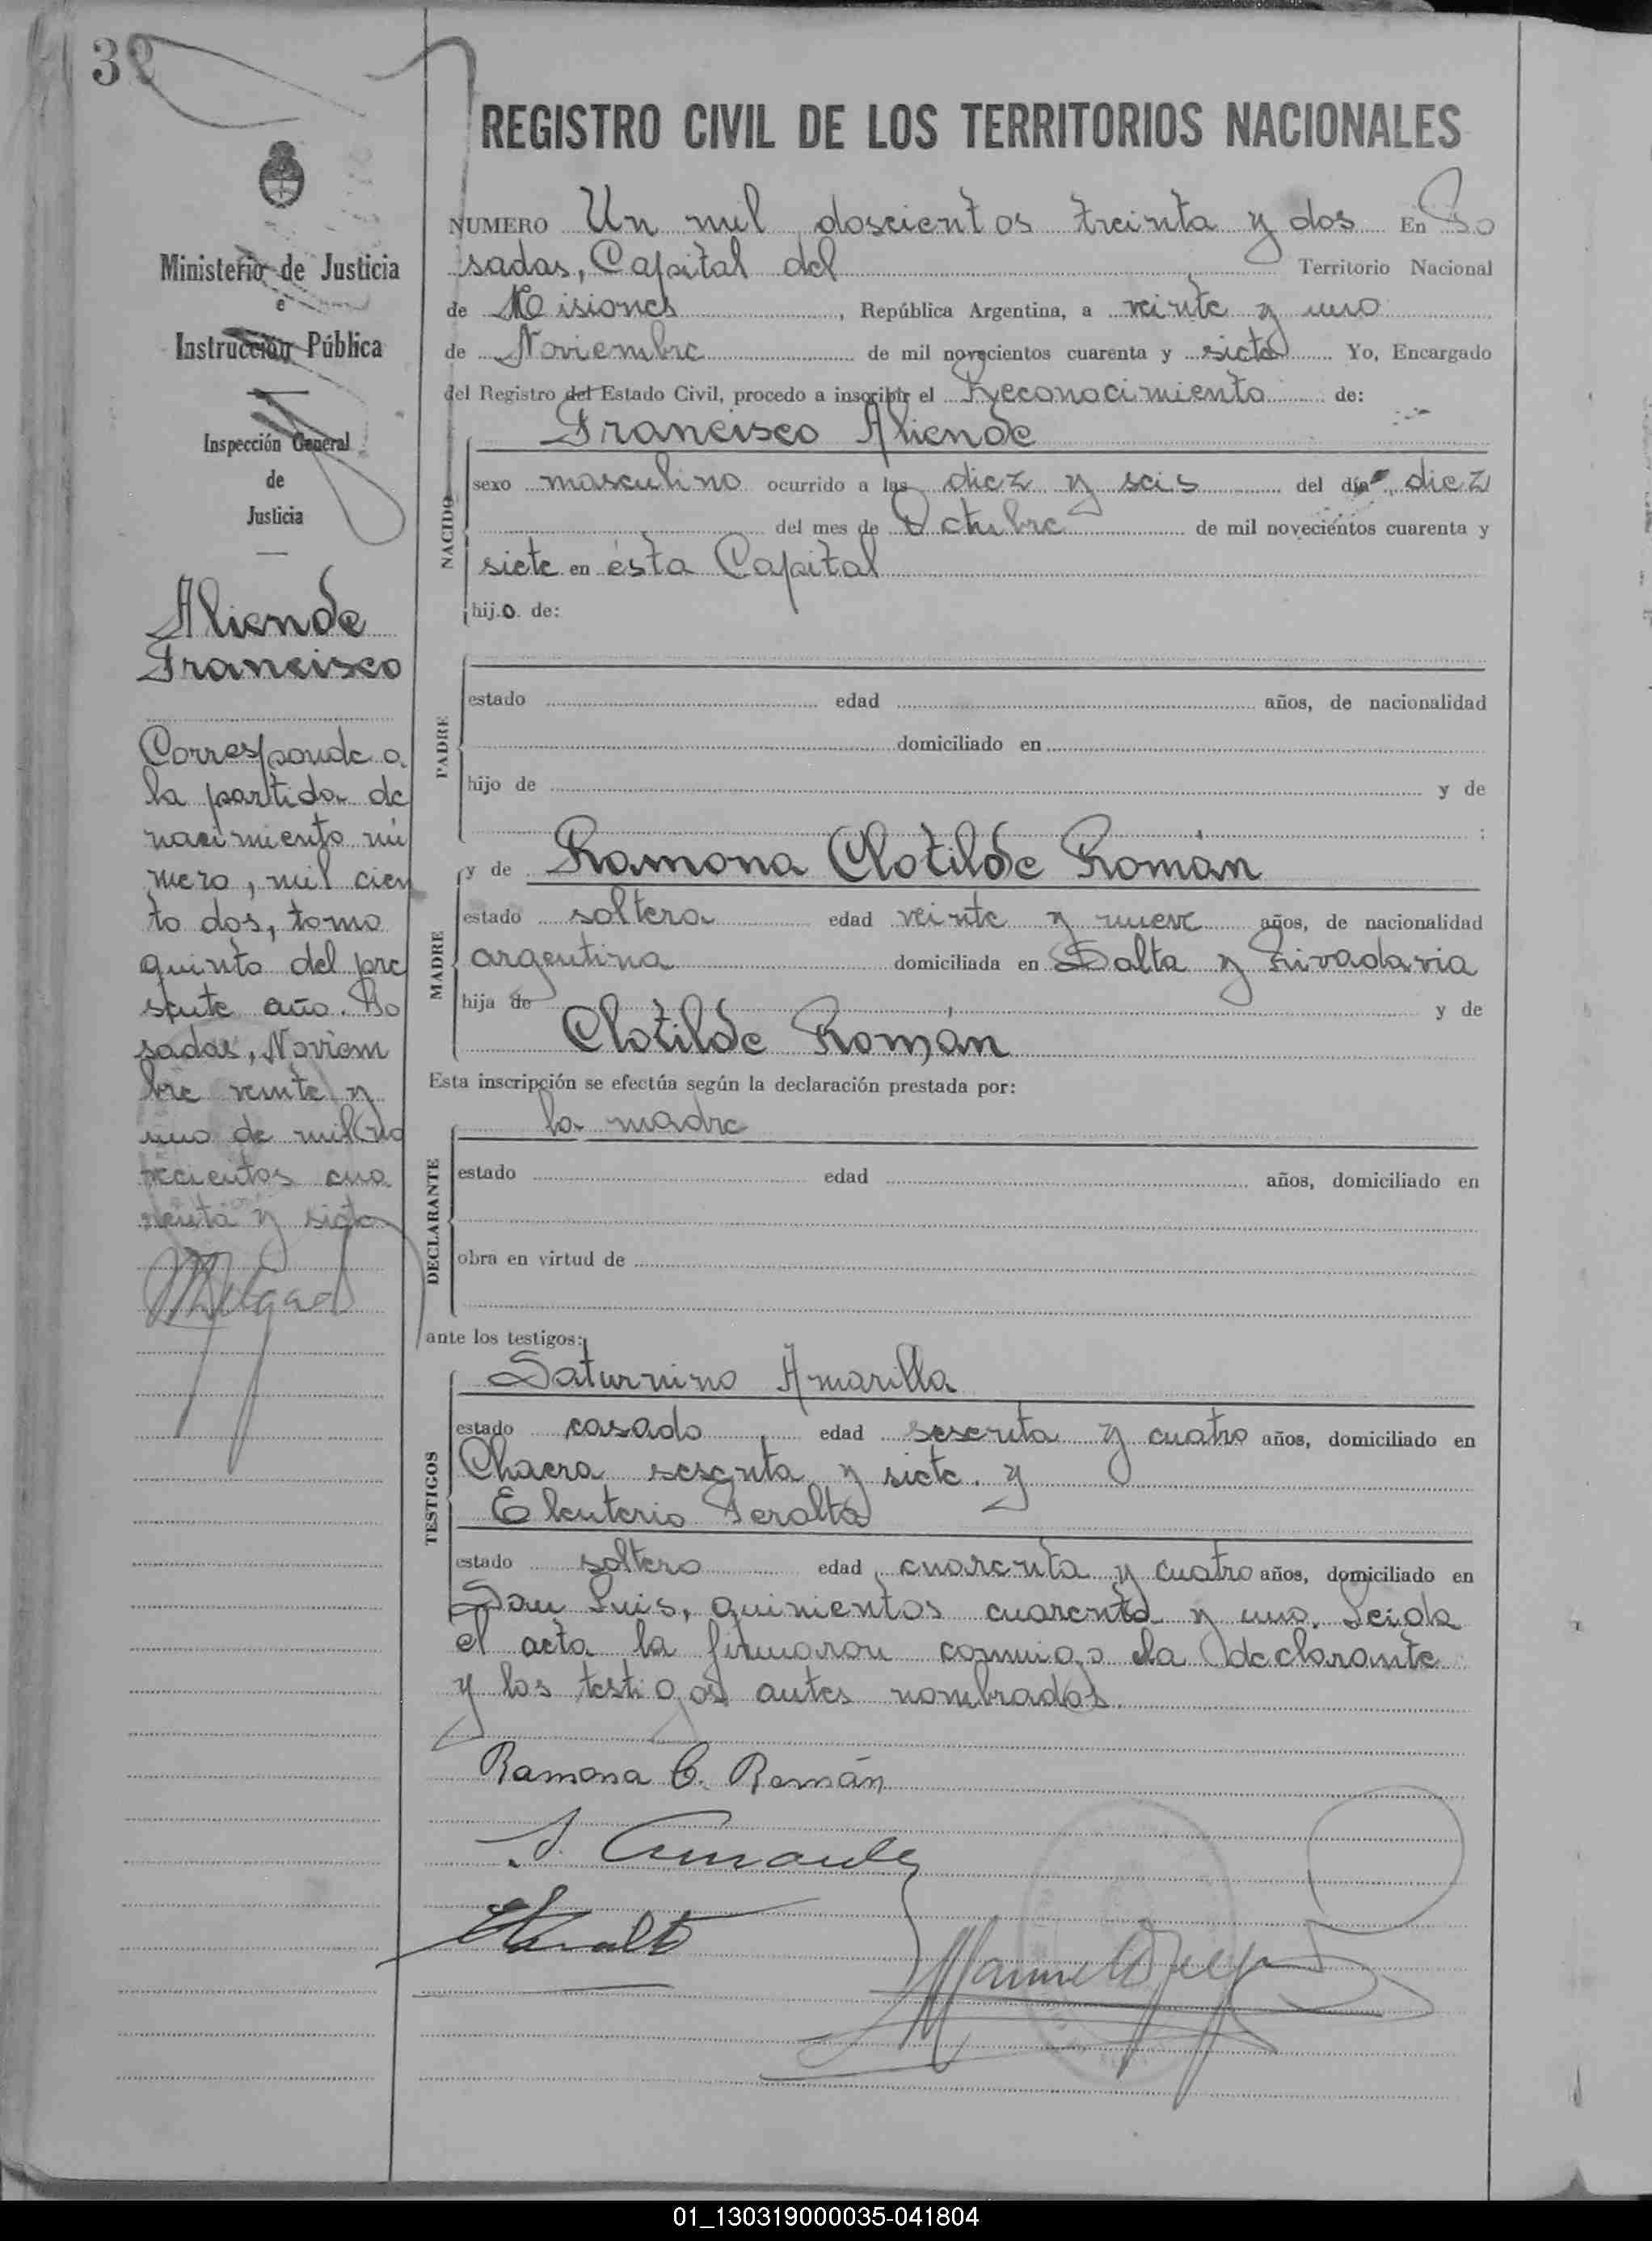 32
REGISTRO CIVIL DE LOS TERRITORIOS NACIONALES
Ministerio de Justicia
e
Instrucción Pública
Inspección General
de
Justicia
Aliende
Francisco
Corresponde a
la partida de
nacimiento nú
mero, mil cien
to dos, tomo
quinto del pre
sente año. Po
sadas, Noviem
bre veinte y
uno de mil no
vecientos cua
renta y siete
NUMERO Un mil doscientos treinta y dos En Po
sadas, Capital del Territorio Nacional
de Misiones, República Argentina, a veinte y uno
de Noviembre de mil novecientos cuarenta y siete Yo, Encargado
del Registro del Estado Civil, procedo a inscribir el Reconocimiento de:
NACIDO
Francisco Aliende
sexo masculino ocurrido a las diez y seis del día diez
del mes de Octubre de mil novecientos cuarenta y
siete en ésta Capital
hijo de:
PADRE
estado edad años, de nacionalidad
domiciliado en
hijo de y de
:
MADRE
y de Ramona Clotilde Román
estado soltera edad veinte y nueve años, de nacionalidad
argentina domiciliada en Salta y Rivadavia
hija de y de
Clotilde Román
Esta inscripción se efectúa según la declaración prestada por:
DECLARANTE
la madre
estado edad años, domiciliado en
obra en virtud de
ante los testigos:
TESTIGOS
Saturnino Amarilla
estado casado edad sesenta y cuatro años, domiciliado en
Chacra sesenta y siete. y
Eleuterio Peralta
estado soltero edad cuarenta y cuatro años, domiciliado en
San Luis, quinientos cuarenta y uno. Leida
el acta la firmaron conmigo la declarante
y los testigos antes nombrados.
Ramona C. Román
01_130319000035-041804